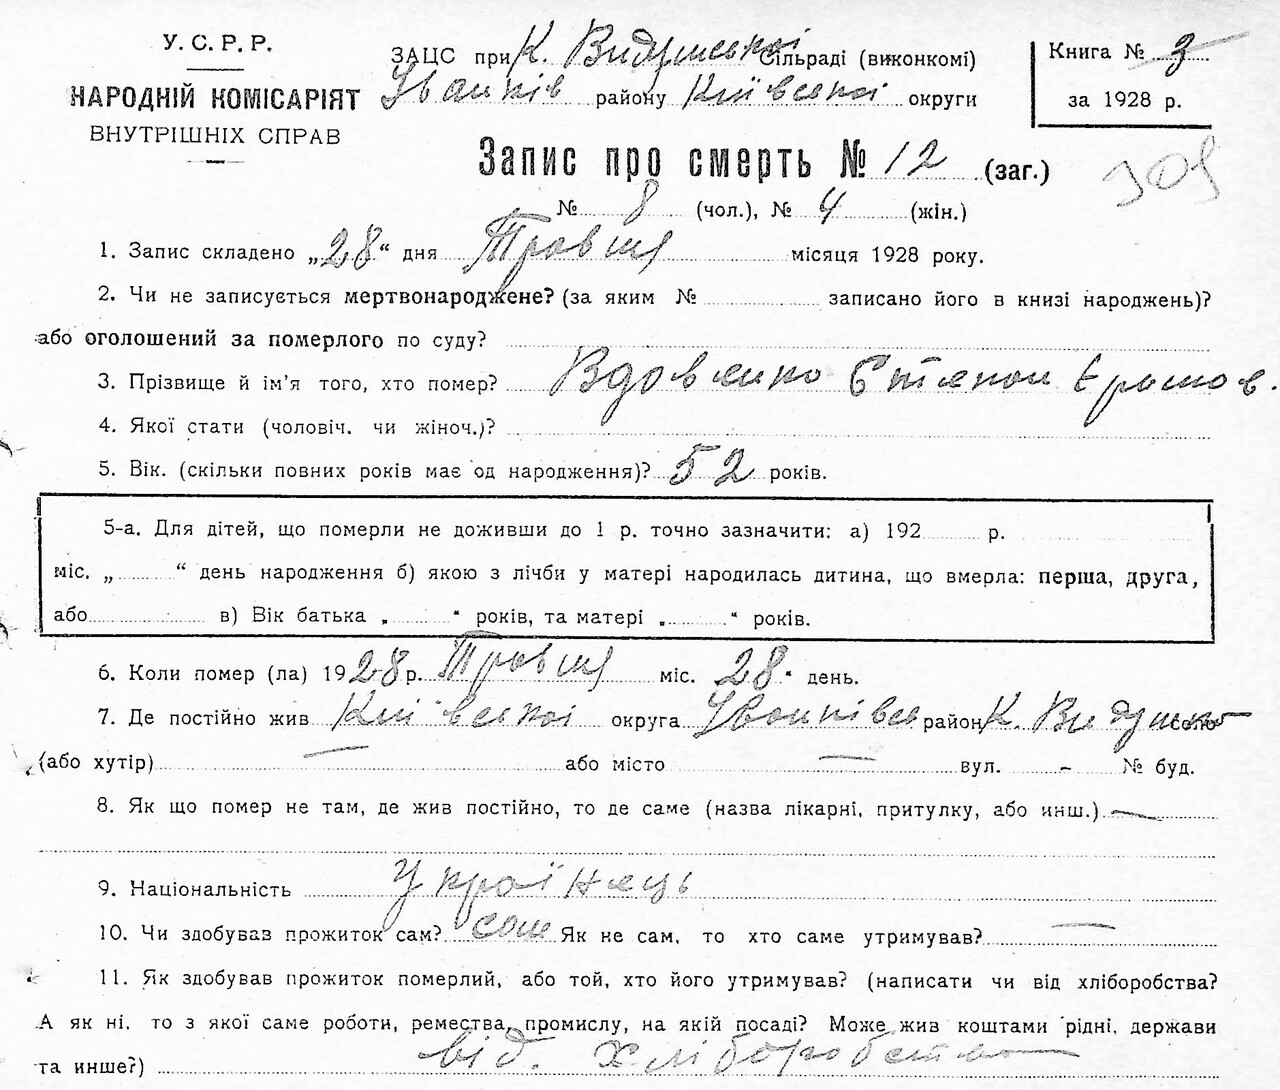 У. С. Р. Р.
НАРОДНІЙ КОМІСАРІЯТ
ВНУТРІШНІХ СПРАВ
ЗАЦС при К. Видумської Сільраді (виконкомі)
Іванків району Київської округи
Книга № 3
за 1928 р.
Запис про смерть № 12 (заг.)
309
№ 8 (чол.), № 4 (жін.)
1. Запис складено „28“ дня Травня місяця 1928 року.
2. Чи не записується мертвонароджене? (за яким № записано його в книзі народжень)?
або оголошений за померлого по суду?
3. Прізвище й ім’я того, хто помер? Вдовенко Степан
4. Якої стати (чоловіч. чи жіноч.)?
5. Вік. (скільки повних років має од народження)? 52 років.
5-а. Для дітей, що померли не доживши до 1 р. точно зазначити: а) 192 р.
міс. „ “ день народження б) якою з лічби у матері народилась дитина, що вмерла: перша, друга,
або в) Вік батька „ “ років, та матері „ “ років.
6. Коли помер (ла) 1928 р. Травня міс. 28 день.
7. Де постійно жив Київської округа Іванківс район К. Видумка
(або хутір) — або місто — вул. - № буд.
8. Як що помер не там, де жив постійно, то де саме (назва лікарні, притулку, або инш.) —
9. Національність Українець
10. Чи здобував прожиток сам? сам Як не сам, то хто саме утримував? —
11. Як здобував прожиток померлий, або той, хто його утримував? (написати чи від хліборобства?
А як ні, то з якої саме роботи, ремества, промислу, на якій посаді? Може жив коштами рідні, держави
та инше?) від. хліборобства